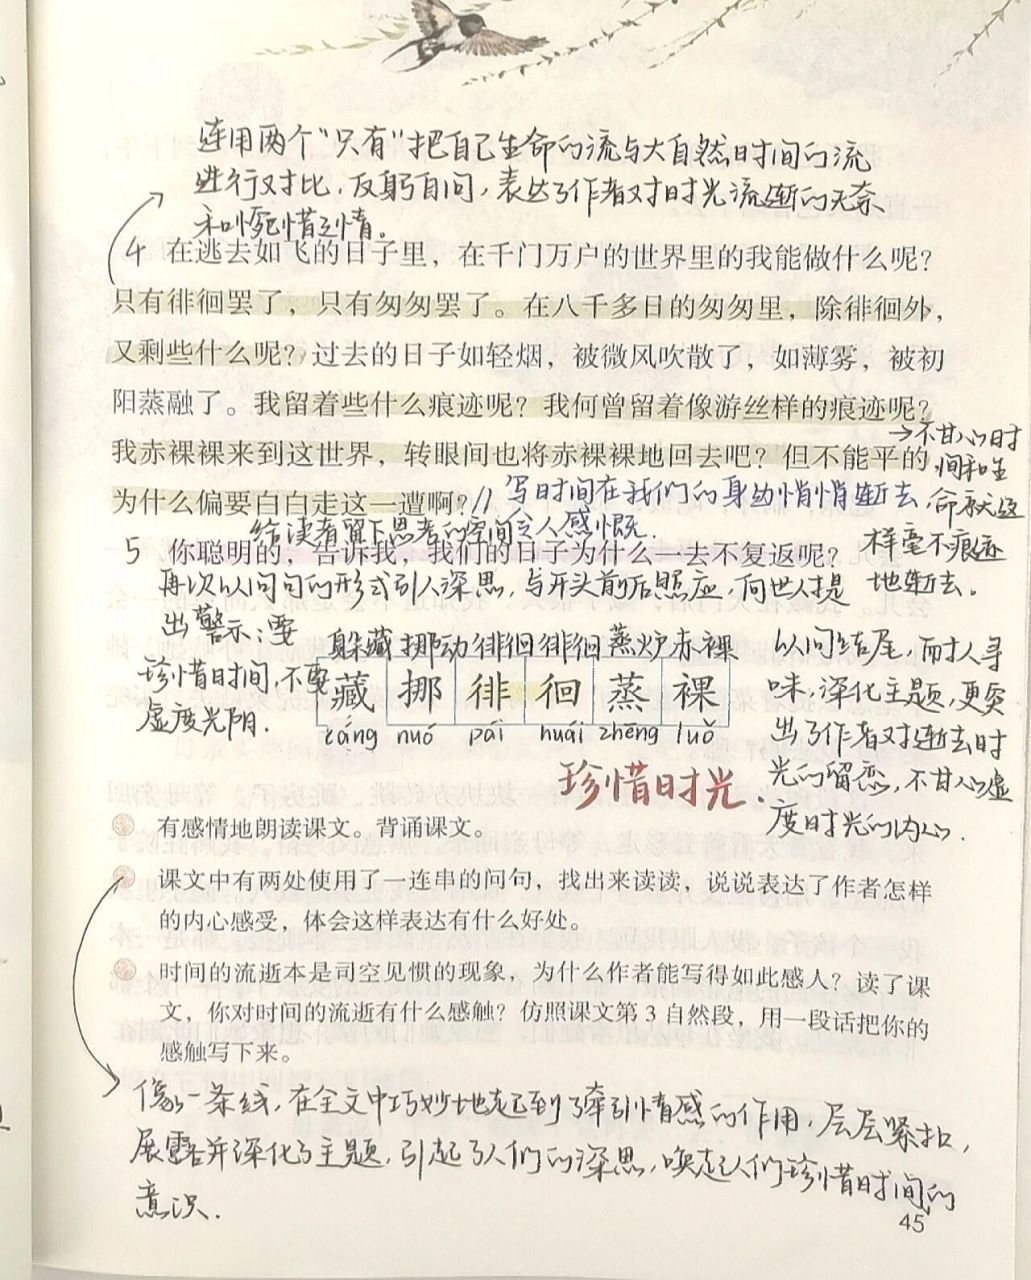 连用两个“只有”把自己生命的流与大自然时间的流
进行对比，反躬自问，表达了作者对时光流逝的无奈
和惋惜之情。
4 在逃去如飞的日子里，在千门万户的世界里的我能做什么呢？
只有徘徊罢了，只有匆匆罢了。在八千多日的匆匆里，除徘徊外，
又剩些什么呢？过去的日子如轻烟，被微风吹散了，如薄雾，被初
阳蒸融了。我留着些什么痕迹呢？我何曾留着像游丝样的痕迹呢？
我赤裸裸来到这世界，转眼间也将赤裸裸地回去吧？但不能平的，
为什么偏要白白走这一遭啊？//
→不甘心时
间和生
命就这
样毫不痕迹
地逝去。
写时间在我们的身边悄悄逝去，
给读者留下思考的空间令人感慨。
5 你聪明的，告诉我，我们的日子为什么一去不复返呢？
再次以问句的形式引人深思，与开头前后照应，向世人提
出警示：要
珍惜时间，不要
虚度光阴。
躲藏 挪动 徘徊 徘徊 蒸炉 赤裸
藏 挪 徘 徊 蒸 裸
cáng nuó pái huái zhēng luǒ
以问结尾，耐人寻
味，深化主题，更突
出了作者对逝去时
光的留恋，不甘心虚
度时光的内心.
珍惜时光.
有感情地朗读课文。背诵课文。
课文中有两处使用了一连串的问句，找出来读读，说说表达了作者怎样
的内心感受，体会这样表达有什么好处。
时间的流逝本是司空见惯的现象，为什么作者能写得如此感人？读了课
文，你对时间的流逝有什么感触？仿照课文第 3 自然段，用一段话把你的
感触写下来。
像一条线，在全文中巧妙地起到了牵引情感的作用，层层紧扣，
展露并深化了主题，引起了人们的深思，唤起人们珍惜时间的
意识.
45